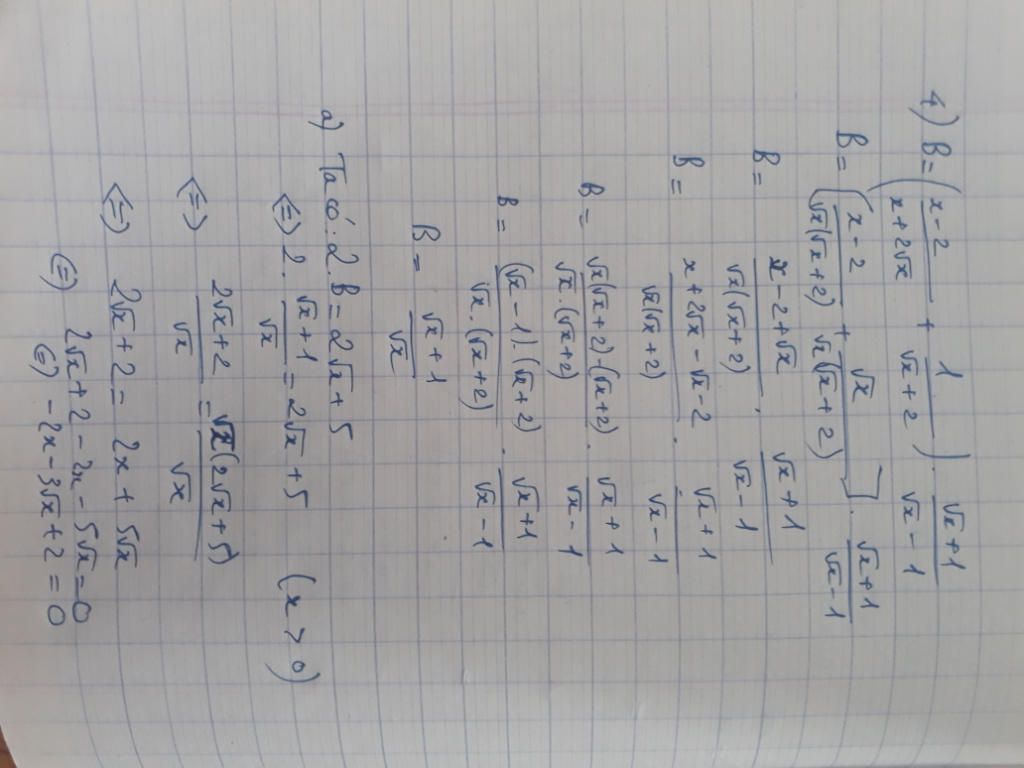 4) B = ( (x-2)/(x+2√x) + 1/(√x+2) ) . (√x+1)/(√x-1)
B = [ (x-2)/(√x(√x+2)) + √x/(√x(√x+2)) ] . (√x+1)/(√x-1)
B = (x-2+√x)/(√x(√x+2)) . (√x+1)/(√x-1)
B = (x+2√x-√x-2)/(√x(√x+2)) . (√x+1)/(√x-1)
B = (√x(√x+2)-(√x+2))/(√x.(√x+2)) . (√x+1)/(√x-1)
B = ((√x-1).(√x+2))/(√x.(√x+2)) . (√x+1)/(√x-1)
B = (√x+1)/√x
a) Ta có: 2.B = 2√x+5
<=> 2. (√x+1)/√x = 2√x+5 (x>0)
<=> (2√x+2)/√x = √x(2√x+5)/√x
<=> 2√x+2 = 2x+5√x
<=> 2√x+2-2x-5√x=0
<=> -2x-3√x+2=0